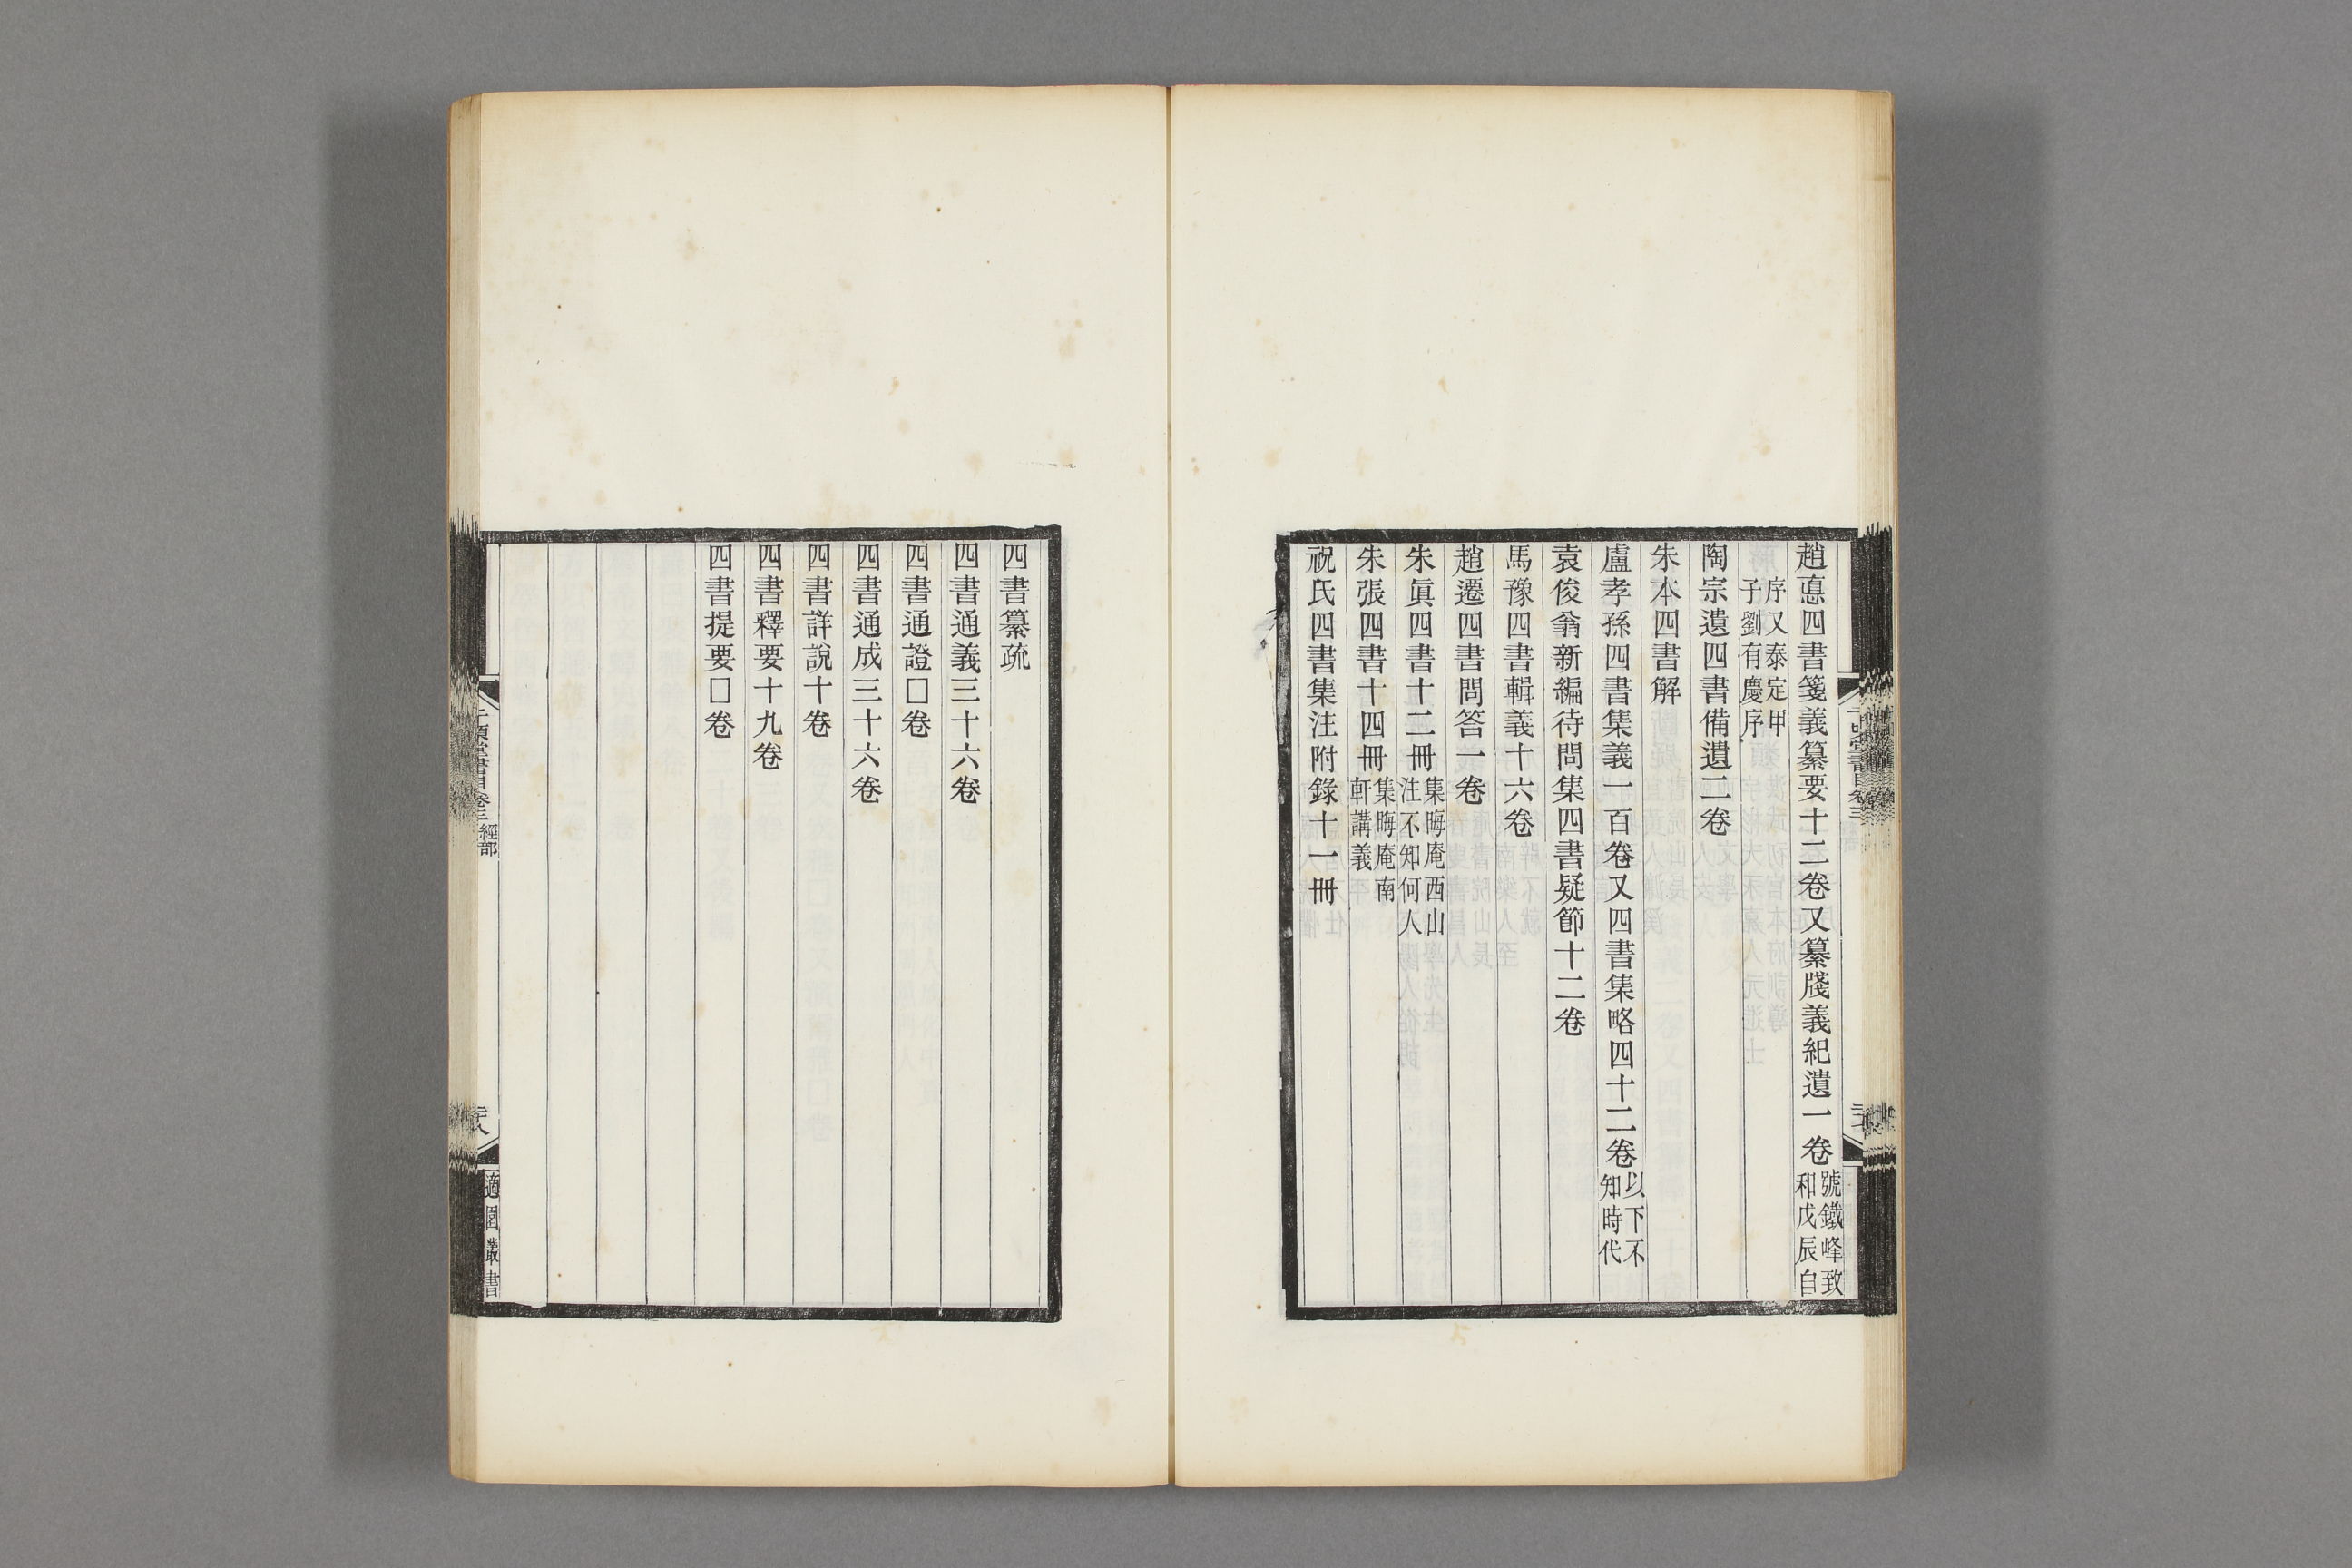 趙悳四書箋義纂要十二卷又纂牋義紀遺一卷號鐵峰致和戊辰自
序又泰定甲子劉有慶序
陶宗遺四書備遺二卷
朱本四書解
盧孝孫四書集義一百卷又四書集略四十二卷以下不知時代
袁俊翁新編待問集四書疑節十二卷
馬豫四書輯義十六卷
趙遷四書問答一卷
朱眞四書十二冊集晦庵西山注不知何人
朱張四書十四冊集晦庵南軒講義
祝氏四書集注附錄十一冊
四書纂疏
四書通義三十六卷
四書通證□卷
四書通成三十六卷
四書詳說十卷
四書釋要十九卷
四書提要□卷
千頃堂書目卷三 經部
適園叢書